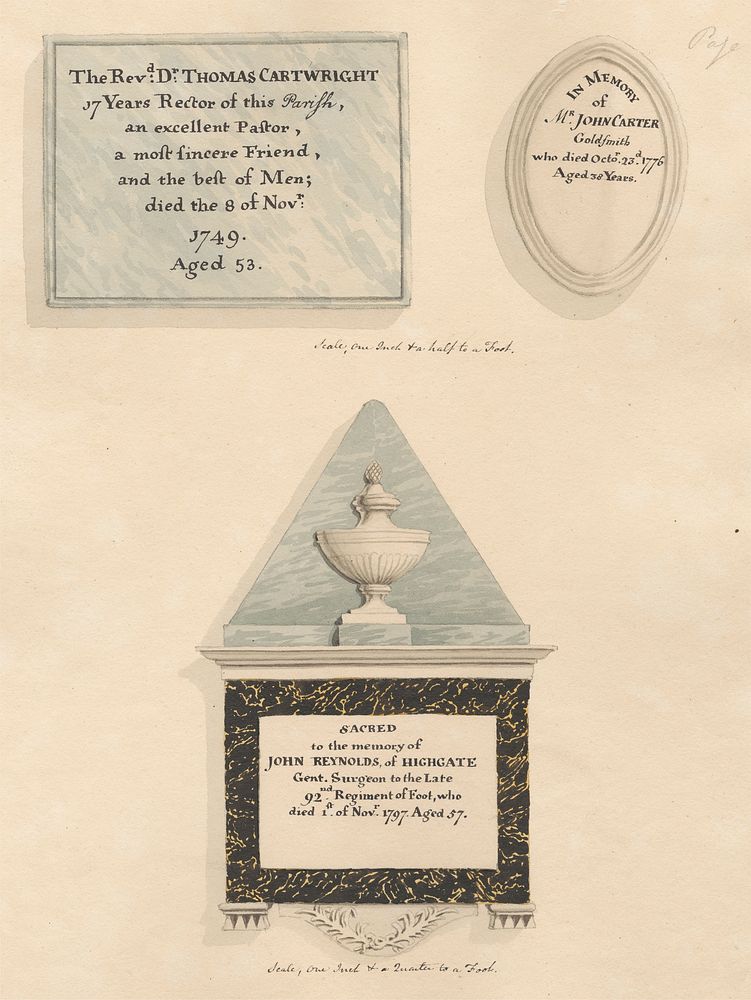 Page
The Revd. Dr. THOMAS CARTWRIGHT
17 Years Rector of this Pariſh,
an excellent Paſtor,
a moſt ſincere Friend,
and the beſt of Men;
died the 8 of Novr.
1749.
Aged 53.
IN MEMORY
of
Mr. JOHN CARTER
Goldſmith
who died Octor. 23d. 1776
Aged 38 Years.
Scale, one Inch & a half to a Foot.
SACRED
to the memory of
JOHN REYNOLDS, of HIGHGATE
Gent. Surgeon to the Late
92nd. Regiment of Foot, who
died 1ſt. of Novr. 1797. Aged 57.
Scale, one Inch & a Quarter to a Foot.